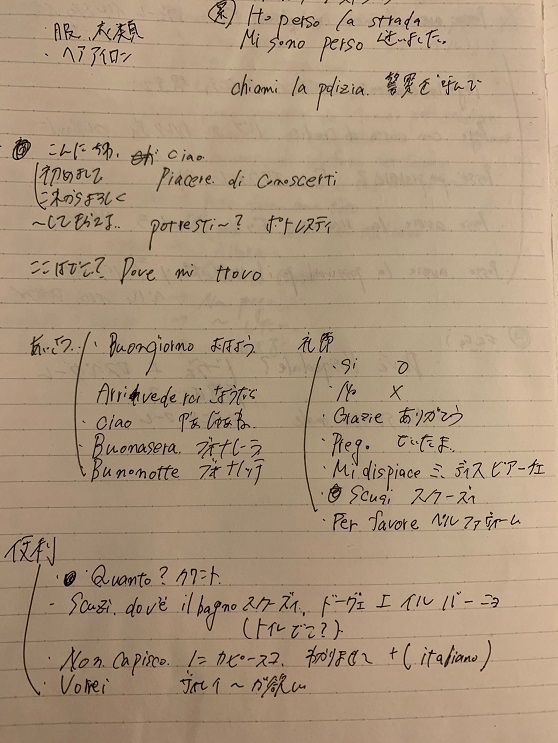 Ho perso la strada
服、衣類
Mi sono perso 迷いました。
・ヘアアイロン
chiami la polizia. 警察を呼んで
こんにちは、 ciao
初めまして Piacere di Conoscerti
これからよろしく
〜してもらえる.. potresti〜? ポトレスティ
ここはどこ? Dove mi trovo
あいさつ ・Buongiorno おはよう
Arrivederci さようなら
・Ciao やぁ じゃあね
・Buonasera. ブオナセーラ
・Bunonotte ブオナノッテ
礼節
・Si ○
・No ×
・Grazie ありがとう
・Prego.
・Mi dispiace ミ ディスピアーチェ
・Scugi スクーズィ
・Per favore ペルファヴォーム
便利
・Quanto? クワント
・Scuzi. dov'e il bagno スクーズィ、ドーヴェ エ イル バーニョ
(トイレどこ?)
・Non Capisco. カピースコ わかりません +(italiano)
・Vorrei ヴォレイ 〜が欲しい